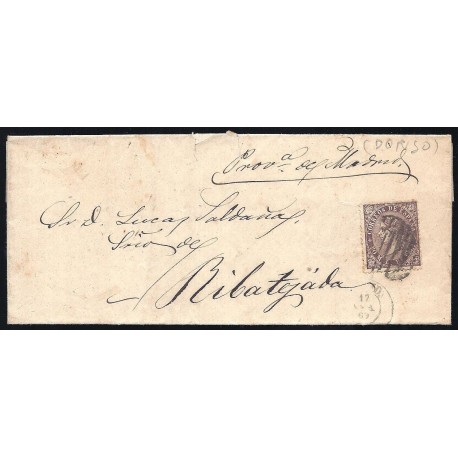 (DORSO)
Prov.ª de Madrid.
Sr. D. Lucas Saldaña,
Srio de
Ribatejada
CORREOS DE ESPAÑA
17